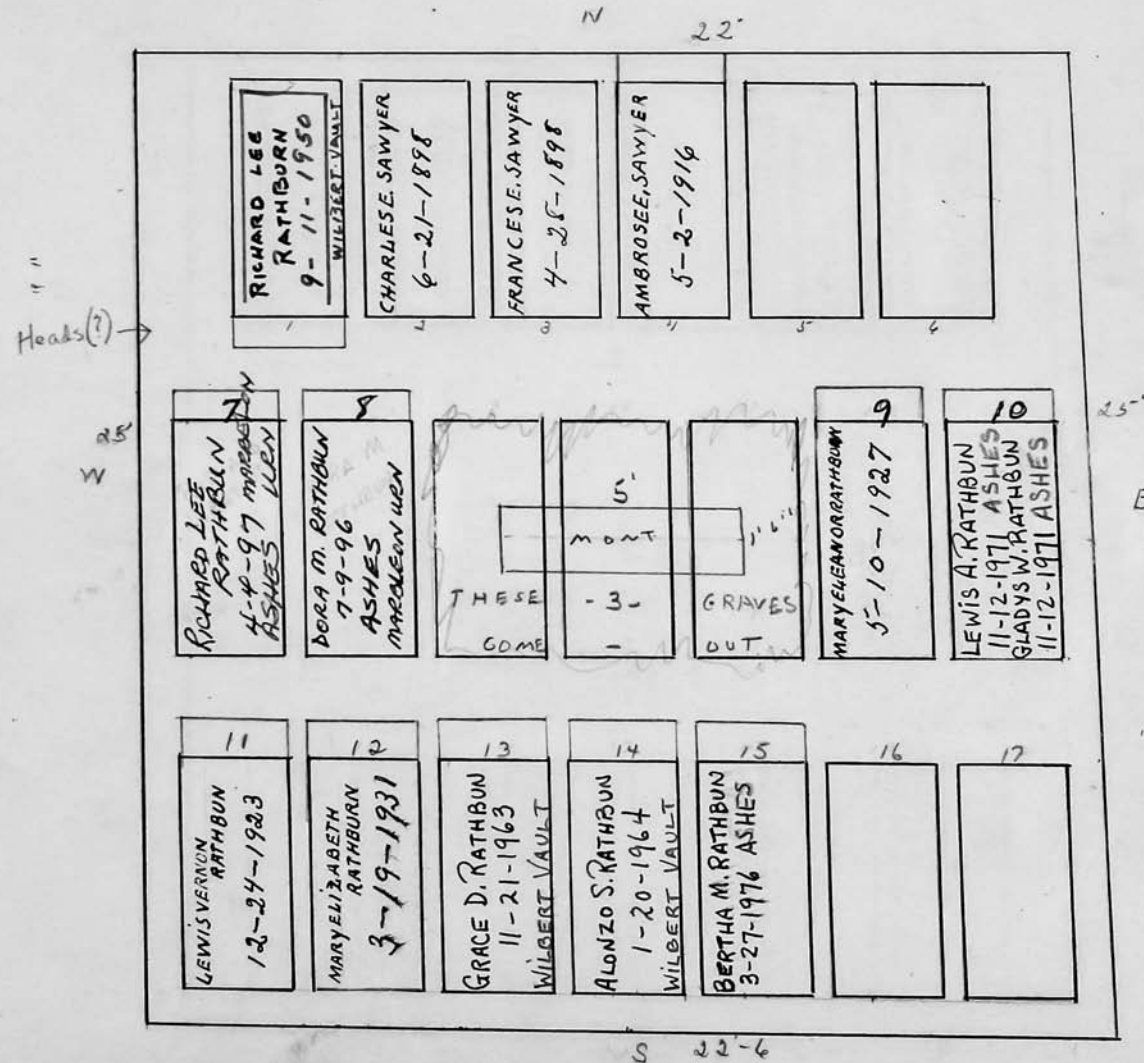 N
22'
RICHARD LEE
RATHBURN
9-11-1950
WILBERT-VAULT
CHARLES E. SAWYER
6-21-1898
FRANCES E. SAWYER
4-28-1898
AMBROSE E. SAWYER
5-2-1916
1
2
3
4
5
6
" "
Heads(?) →
25'
W
7
RICHARD LEE
RATHBUN
4-4-97 MARBELON
ASHES URN
8
DORA M. RATHBUN
7-9-96
ASHES
MARBLEON URN
5'
MONT
1'6"
THESE - 3 - GRAVES
COME - OUT
9
MARY ELEANOR RATHBURN
5-10-1927
10
LEWIS A. RATHBUN
11-12-1971 ASHES
GLADYS W. RATHBUN
11-12-1971 ASHES
25'
E
11
LEWIS VERNON
RATHBUN
12-24-1923
12
MARY ELIZABETH
RATHBURN
3-19-1931
13
GRACE D. RATHBUN
11-21-1963
WILBERT VAULT
14
ALONZO S. RATHBUN
1-20-1964
WILBERT VAULT
15
BERTHA M. RATHBUN
3-27-1976 ASHES
16
17
S
22-6